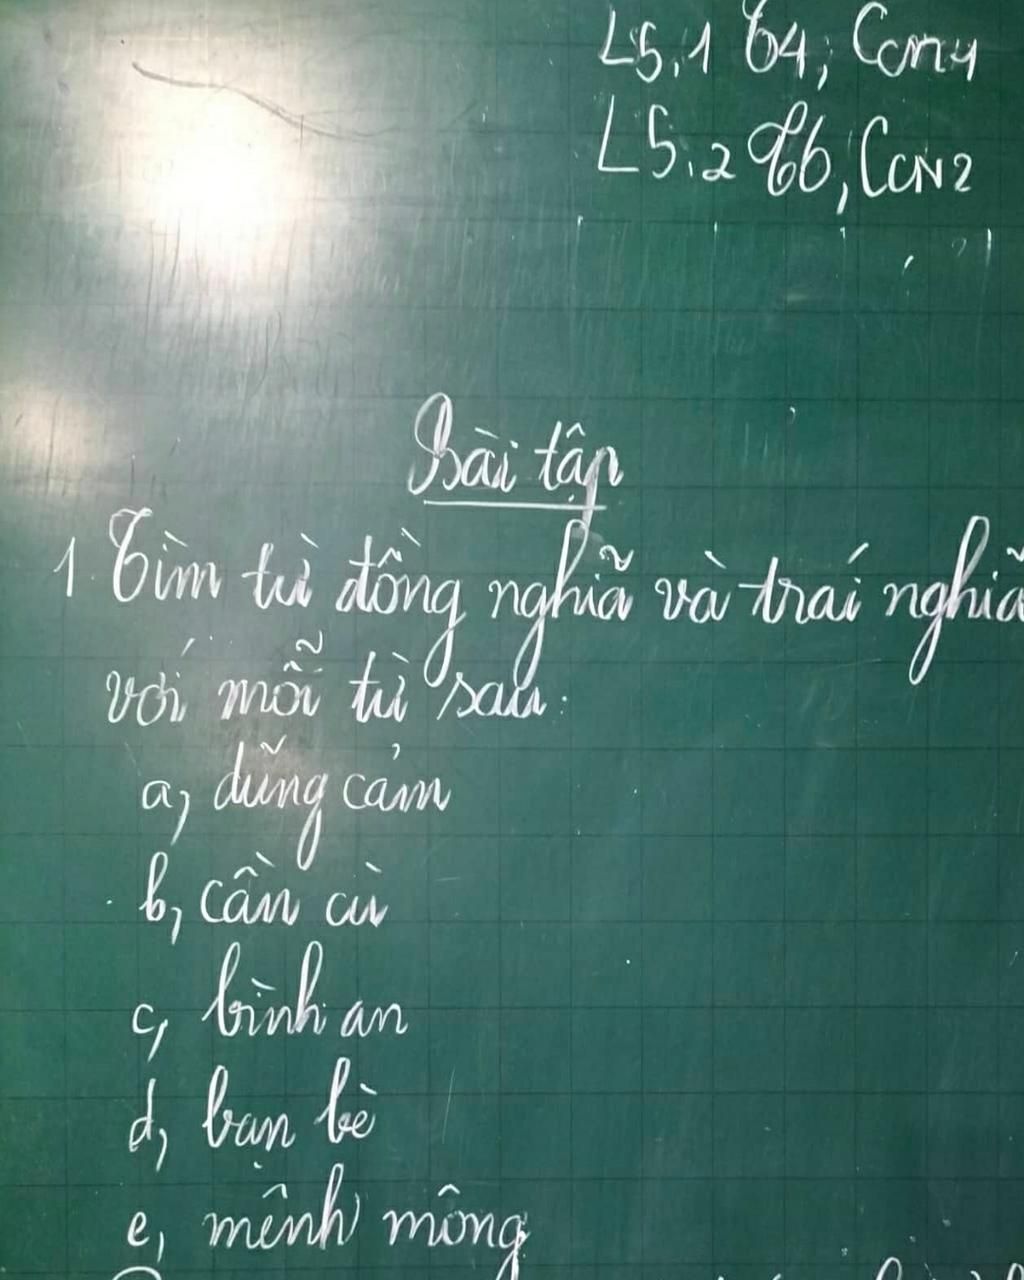 L5.1 T4, CCN4
L5.2 T6, CCN2
Bài tập
1. Tìm từ đồng nghĩa và trái nghĩa
với mỗi từ sau:
a, dũng cảm
b, cần cù
c, bình an
d, bạn bè
e, mênh mông